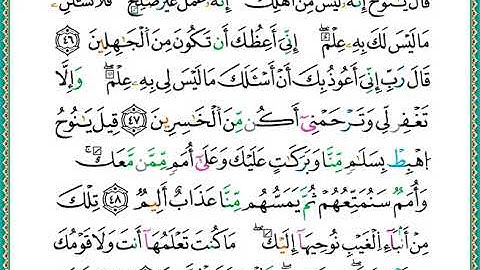 قَالَ يَـٰنُوحُ إِنَّهُۥ لَيْسَ مِنْ أَهْلِكَ ۖ إِنَّهُۥ عَمَلٌ غَيْرُ صَـٰلِحٍ ۖ فَلَا تَسْـَٔلْنِ
مَا لَيْسَ لَكَ بِهِۦ عِلْمٌ ۖ إِنِّىٓ أَعِظُكَ أَن تَكُونَ مِنَ ٱلْجَـٰهِلِينَ ٤٦
قَالَ رَبِّ إِنِّىٓ أَعُوذُ بِكَ أَنْ أَسْـَٔلَكَ مَا لَيْسَ لِى بِهِۦ عِلْمٌ ۖ وَإِلَّا
تَغْفِرْ لِى وَتَرْحَمْنِىٓ أَكُن مِّنَ ٱلْخَـٰسِرِينَ ٤٧ قِيلَ يَـٰنُوحُ
ٱهْبِطْ بِسَلَـٰمٍ مِّنَّا وَبَرَكَـٰتٍ عَلَيْكَ وَعَلَىٰٓ أُمَمٍ مِّمَّن مَّعَكَ ۚ
وَأُمَمٌ سَنُمَتِّعُهُمْ ثُمَّ يَمَسُّهُم مِّنَّا عَذَابٌ أَلِيمٌ ٤٨ تِلْكَ
مِنْ أَنۢبَآءِ ٱلْغَيْبِ نُوحِيهَآ إِلَيْكَ ۖ مَا كُنتَ تَعْلَمُهَآ أَنتَ وَلَا قَوْمُكَ